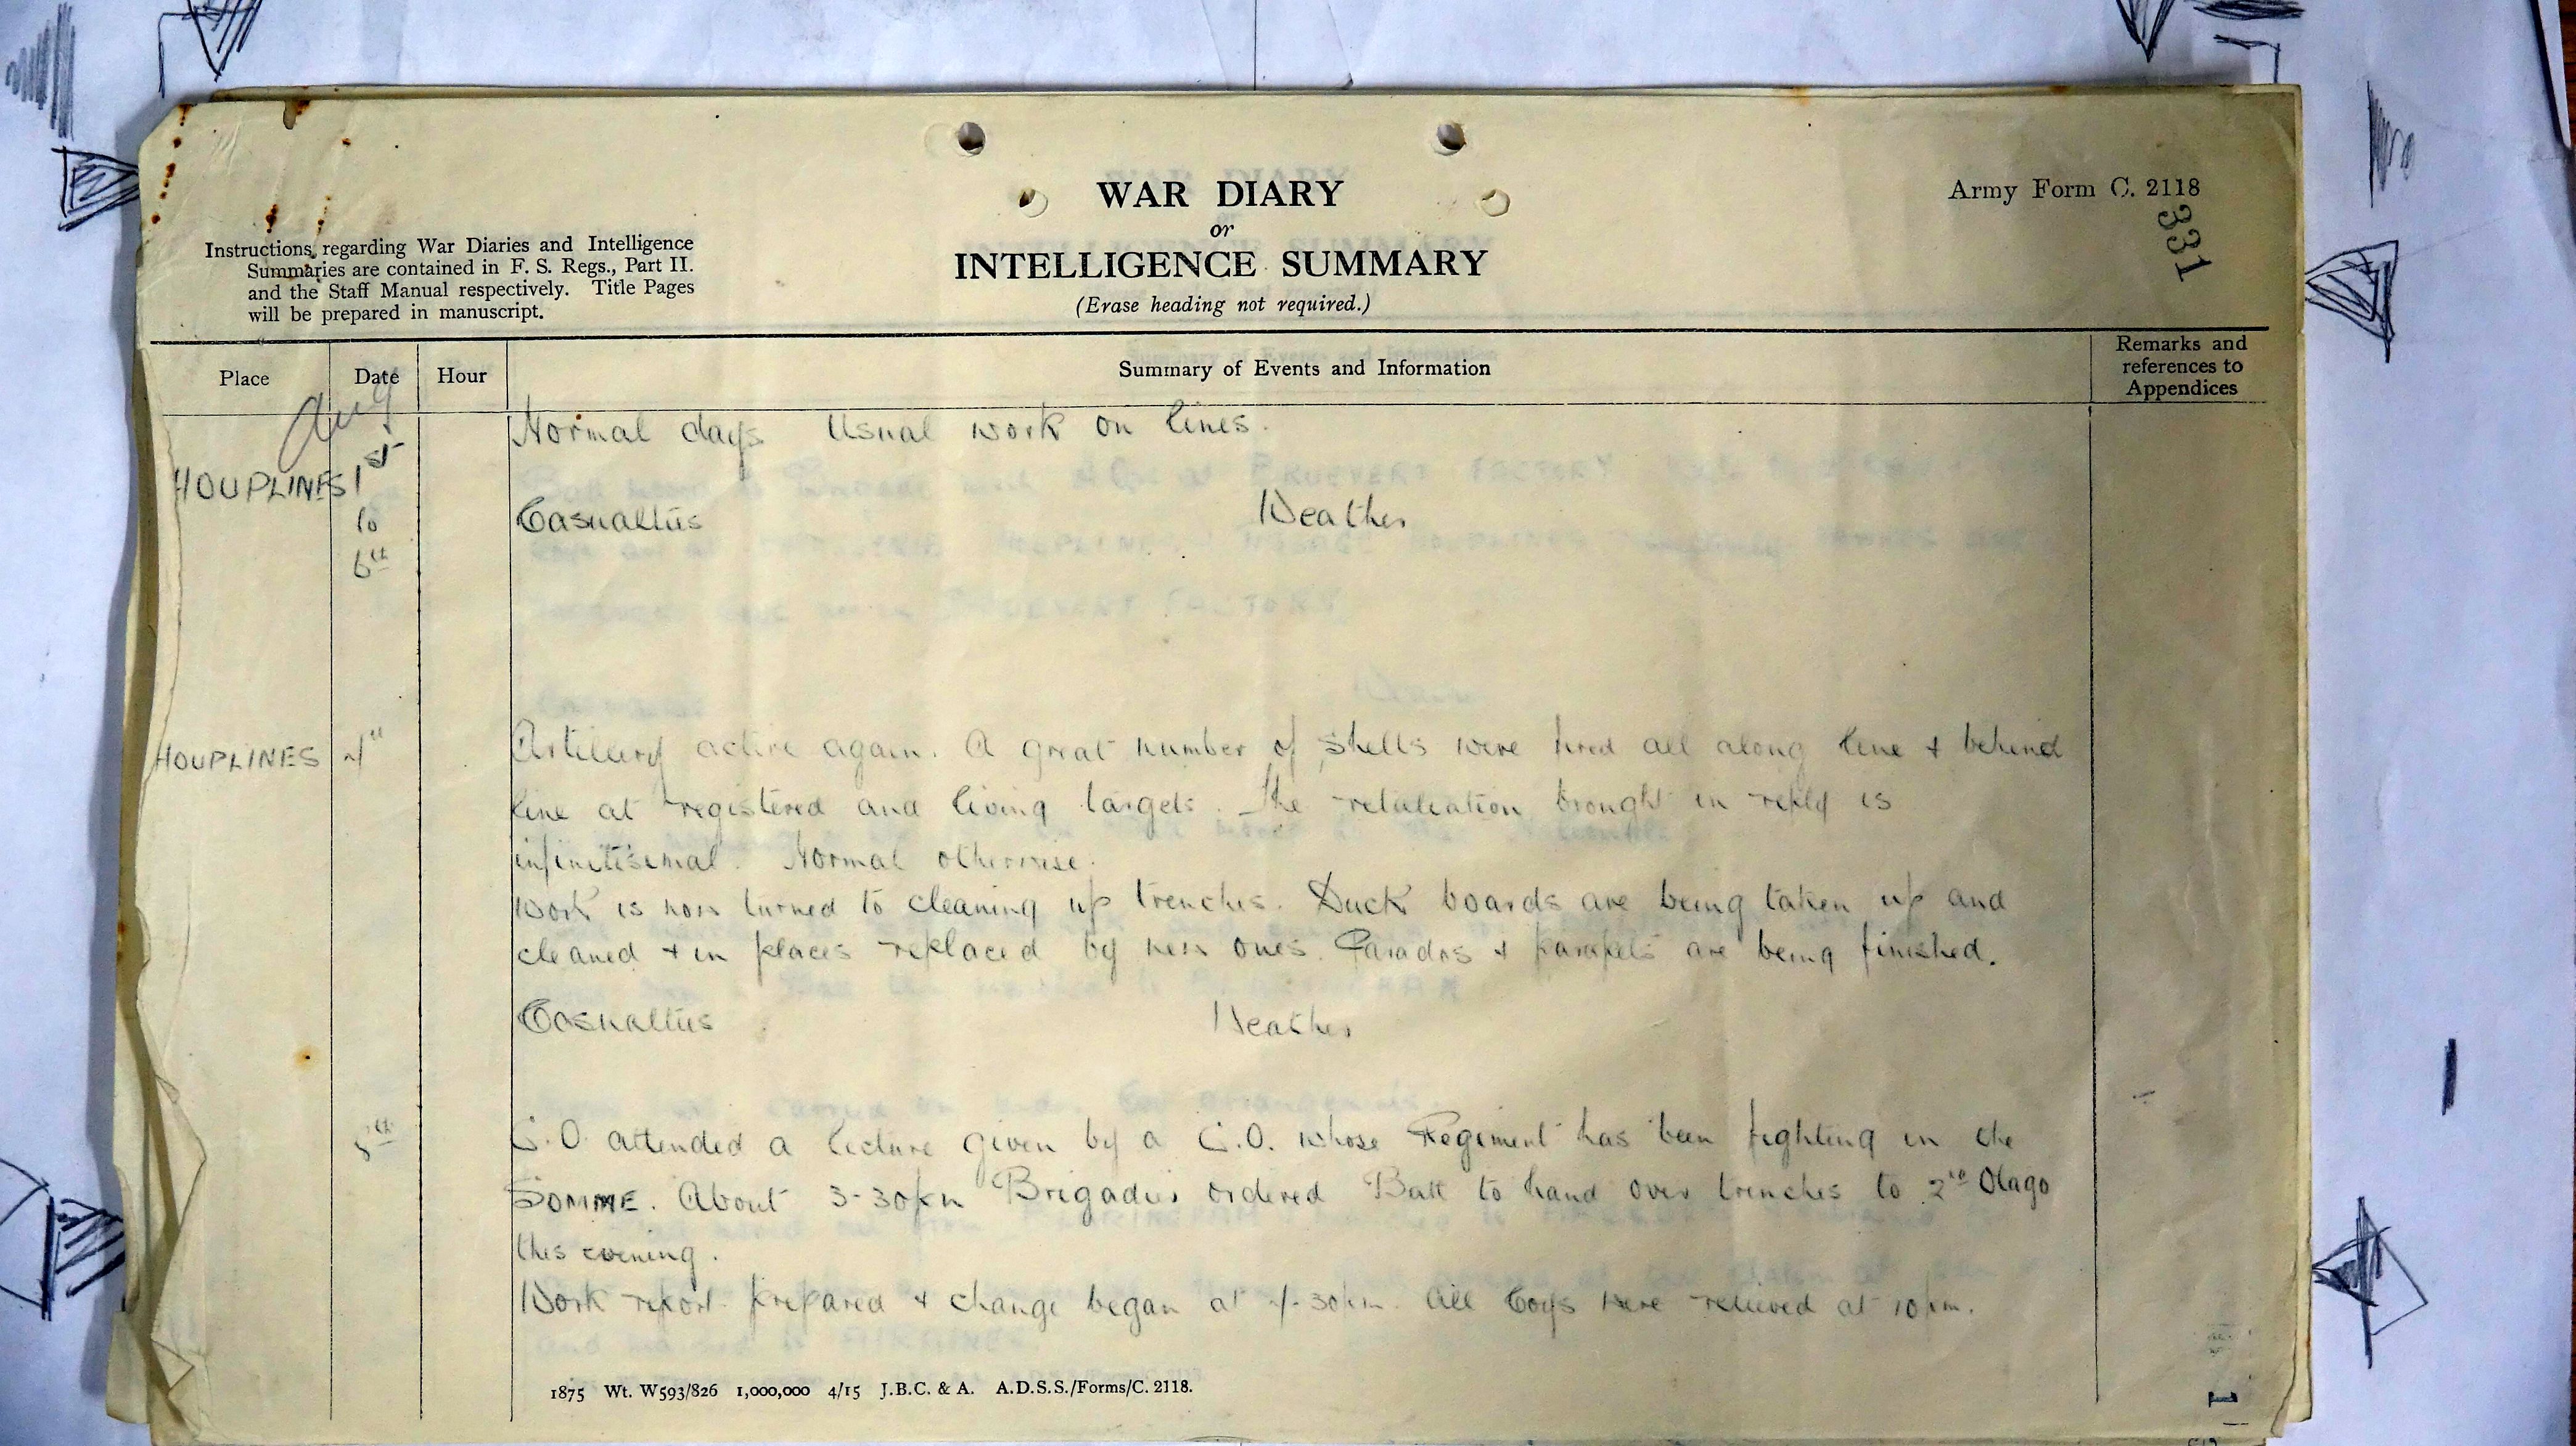 WAR DIARY
or
INTELLIGENCE SUMMARY
(Erase heading not required.)
Army Form C. 2118
331
Instructions regarding War Diaries and Intelligence
Summaries are contained in F. S. Regs., Part II.
and the Staff Manual respectively. Title Pages
will be prepared in manuscript.
Place Date Hour Summary of Events and Information Remarks and references to Appendices
Aug
Normal days Usual work on lines.
HOUPLINES 1st
to Casualties Weather
6th
HOUPLINES 7th Artillery active again. A great number of shells were fired all along line & behind
line at registered and living targets. The retaliation brought in reply is
infinitisimal. Normal otherwise.
Work is now turned to cleaning up trenches. Duck boards are being taken up and
cleaned & in places replaced by new ones. Parados & parapets are being finished.
Casualties Weather
8th C.O. attended a lecture given by a C.O. whose Regiment has been fighting in the
SOMME. About 3-30pm Brigadier ordered Batt to hand over trenches to 2nd Otago
this evening.
Work report prepared & change began at 7-30pm. All Coys were relieved at 10pm.
1875 Wt. W593/826 1,000,000 4/15 J.B.C. & A. A.D.S.S./Forms/C. 2118.